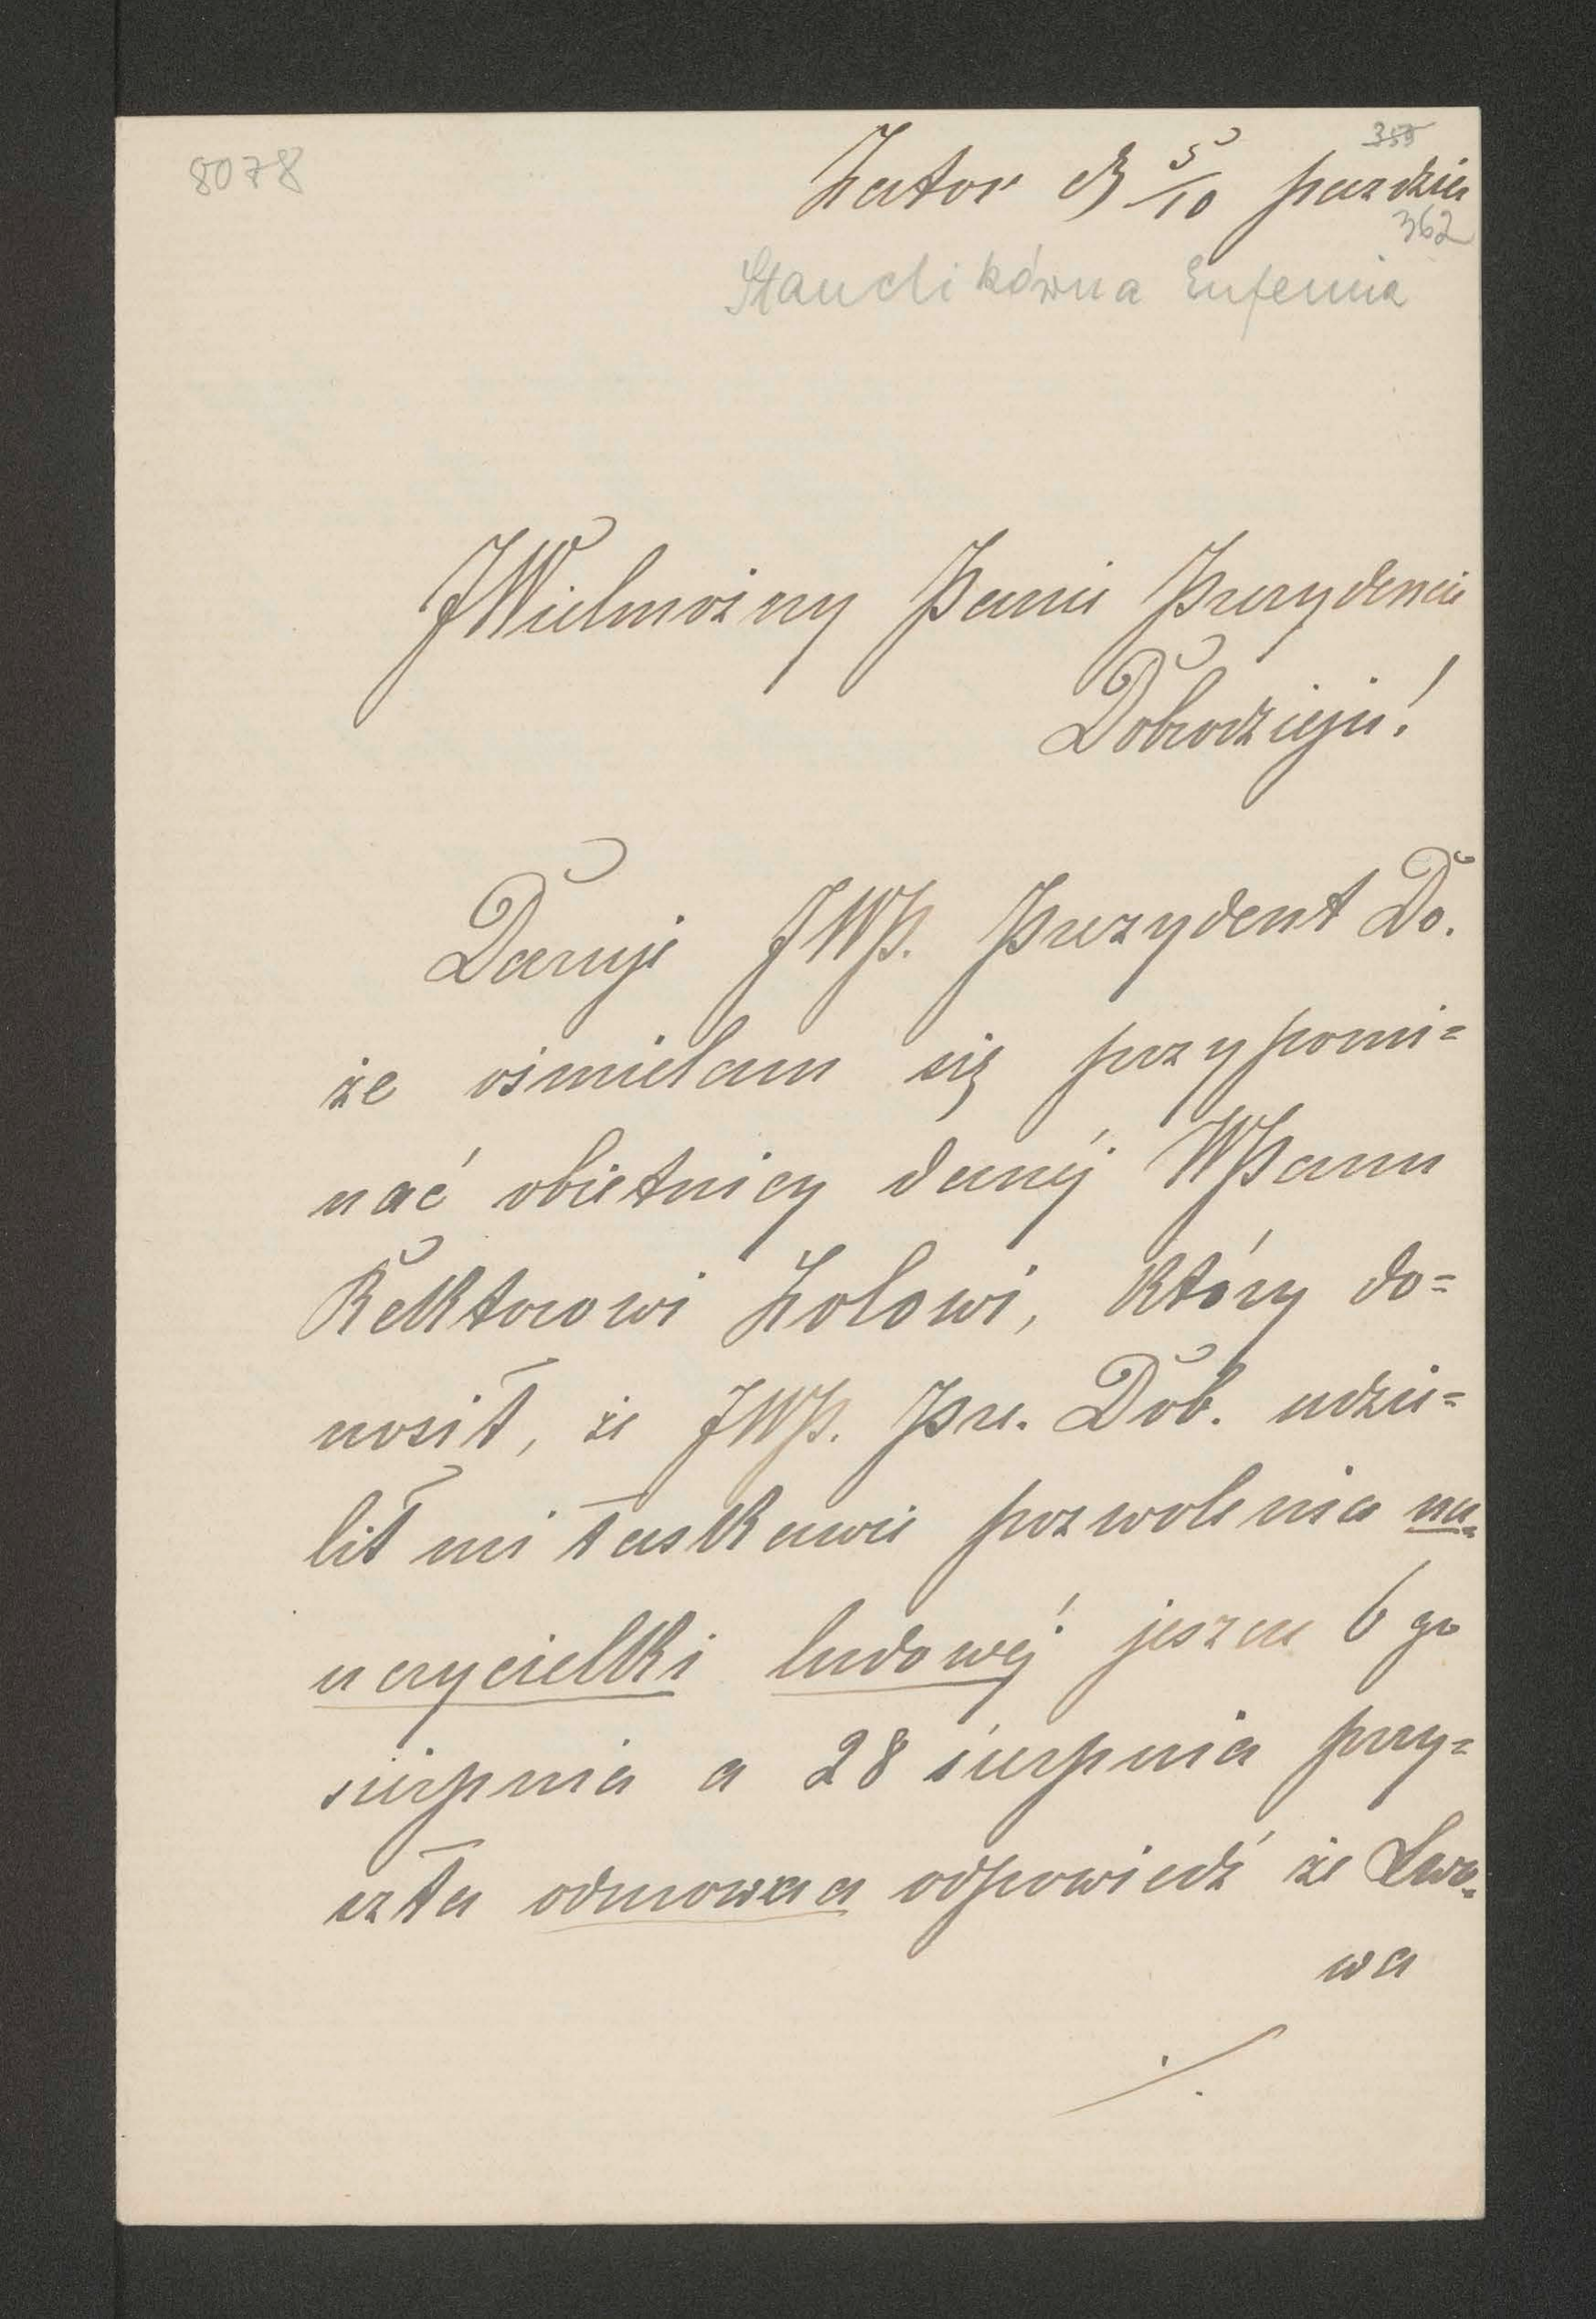 8078
359
Zator d 5/10 paździe
362
Standikówna Eufemia
JWielmożny Panie Prezydencie
Dobrodzieju!
Daruje JWP. Prezydent Do.
że ośmielam się przypomi=
nać obietnicy danéj WPanu
Rektorowi Zolowi, który do=
nosił, że JWP. Pre. Dob. udzie=
lił mi łaskawie pozwolenia na=
uczycielki ludowéj jeszcze 6 go
sierpnia a 28 sierpnia przy=
szła odmowna odpowiedź że Lwo=
wa
./.